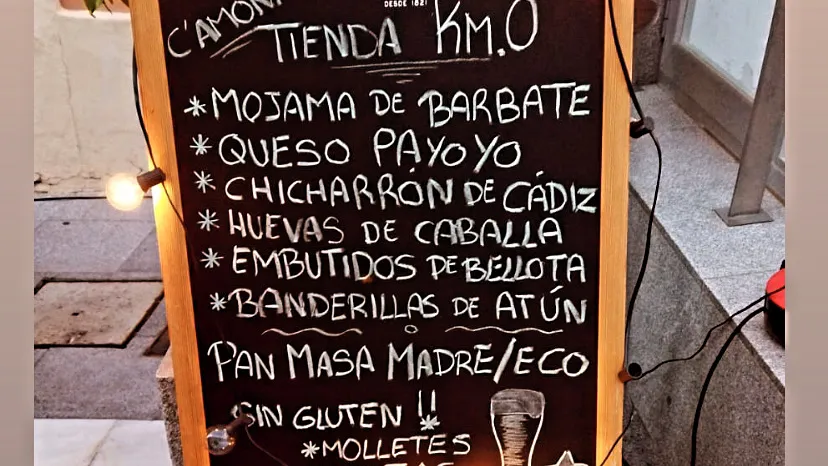 DESDE 1821
C'AMONA
TIENDA KM.0
*MOJAMA DE BARBATE
*QUESO PAYOYO
*CHICHARRÓN DE CÁDIZ
*HUEVAS DE CABALLA
*EMBUTIDOS DE BELLOTA
*BANDERILLAS DE ATÚN
PAN MASA MADRE/ECO
SIN GLUTEN!!
*MOLLETES